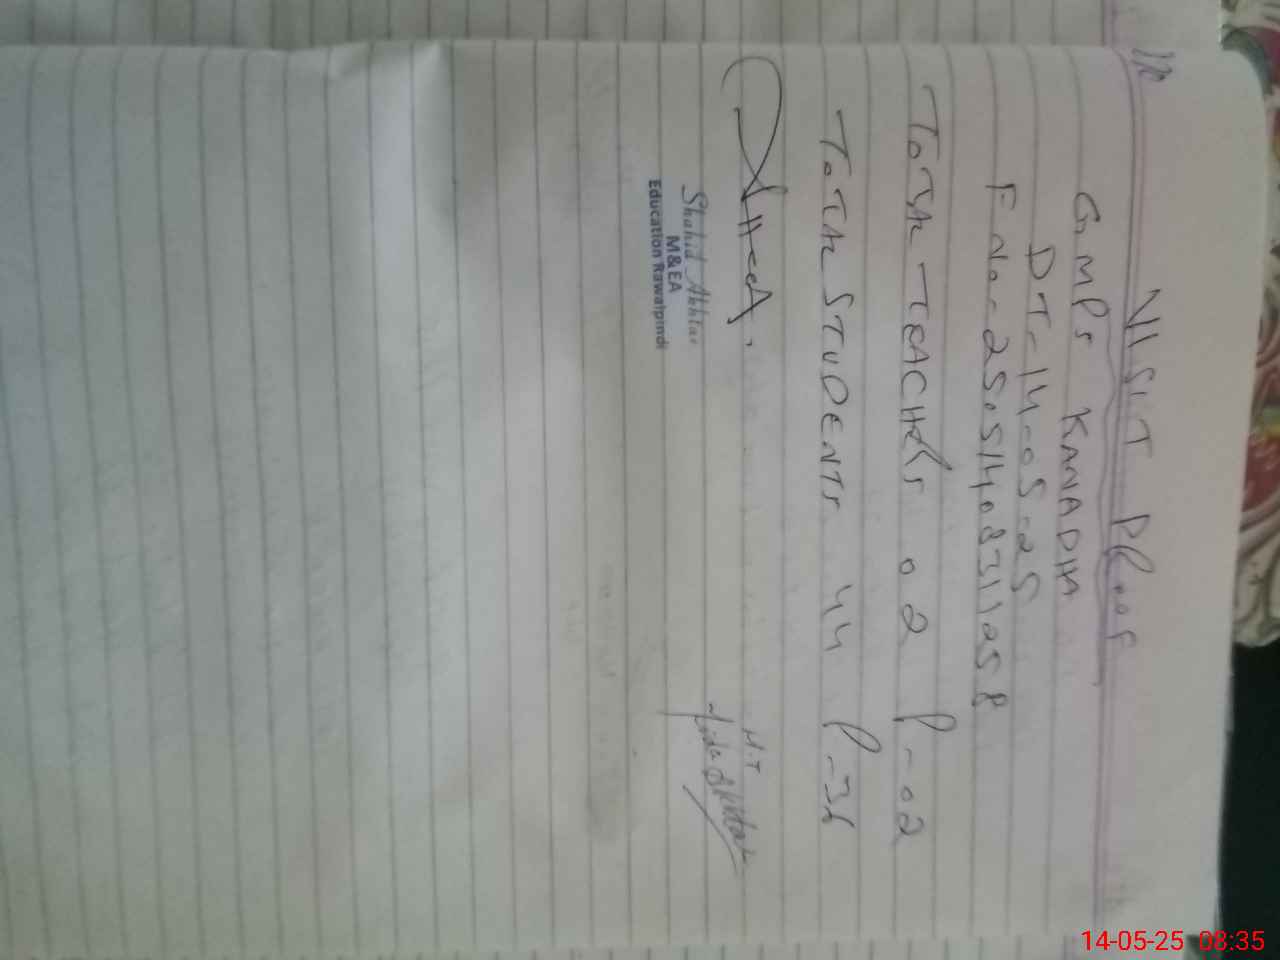 VISIT PROOF
GMPS KANADHA
DT-14-05-25
F No-25051408311258
TOTAL TEACHERS 02 P-02
TOTAL STUDENTS 44 P-36
H.T
Akhtar
Shahid Akhtar
M&EA
Education Rawalpindi
14-05-25 08:35